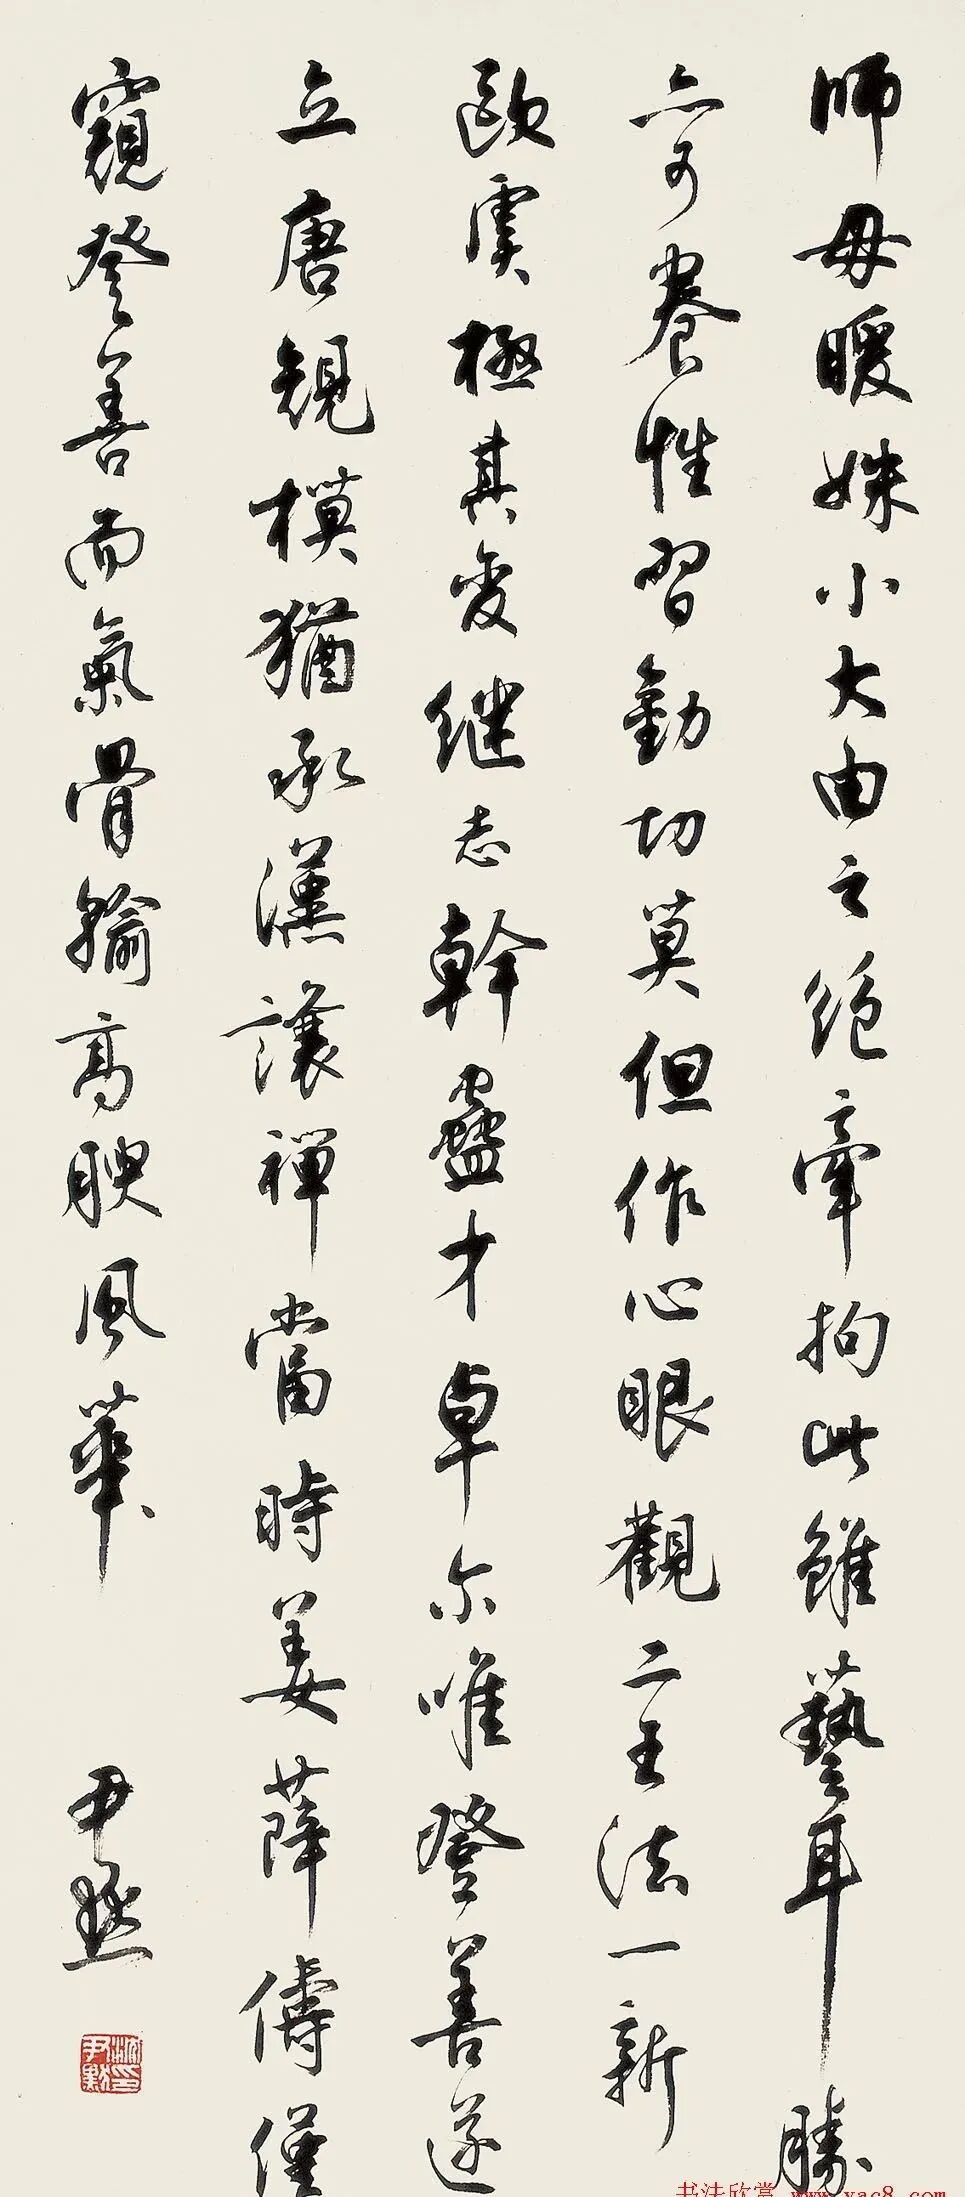 師毋暖姝小大由之絕牽拘此雖藝耳勝
亦可養性習勤切莫但作心眼觀二王法一新
歐虞極其變继志幹蠱才卓尔唯登善遂
立唐規模猶承漢讓禅當時姜薛儔僅
窺登善而氣骨輸高腴風華
尹默
沈尹默印
书法欣赏 www.yac8.com